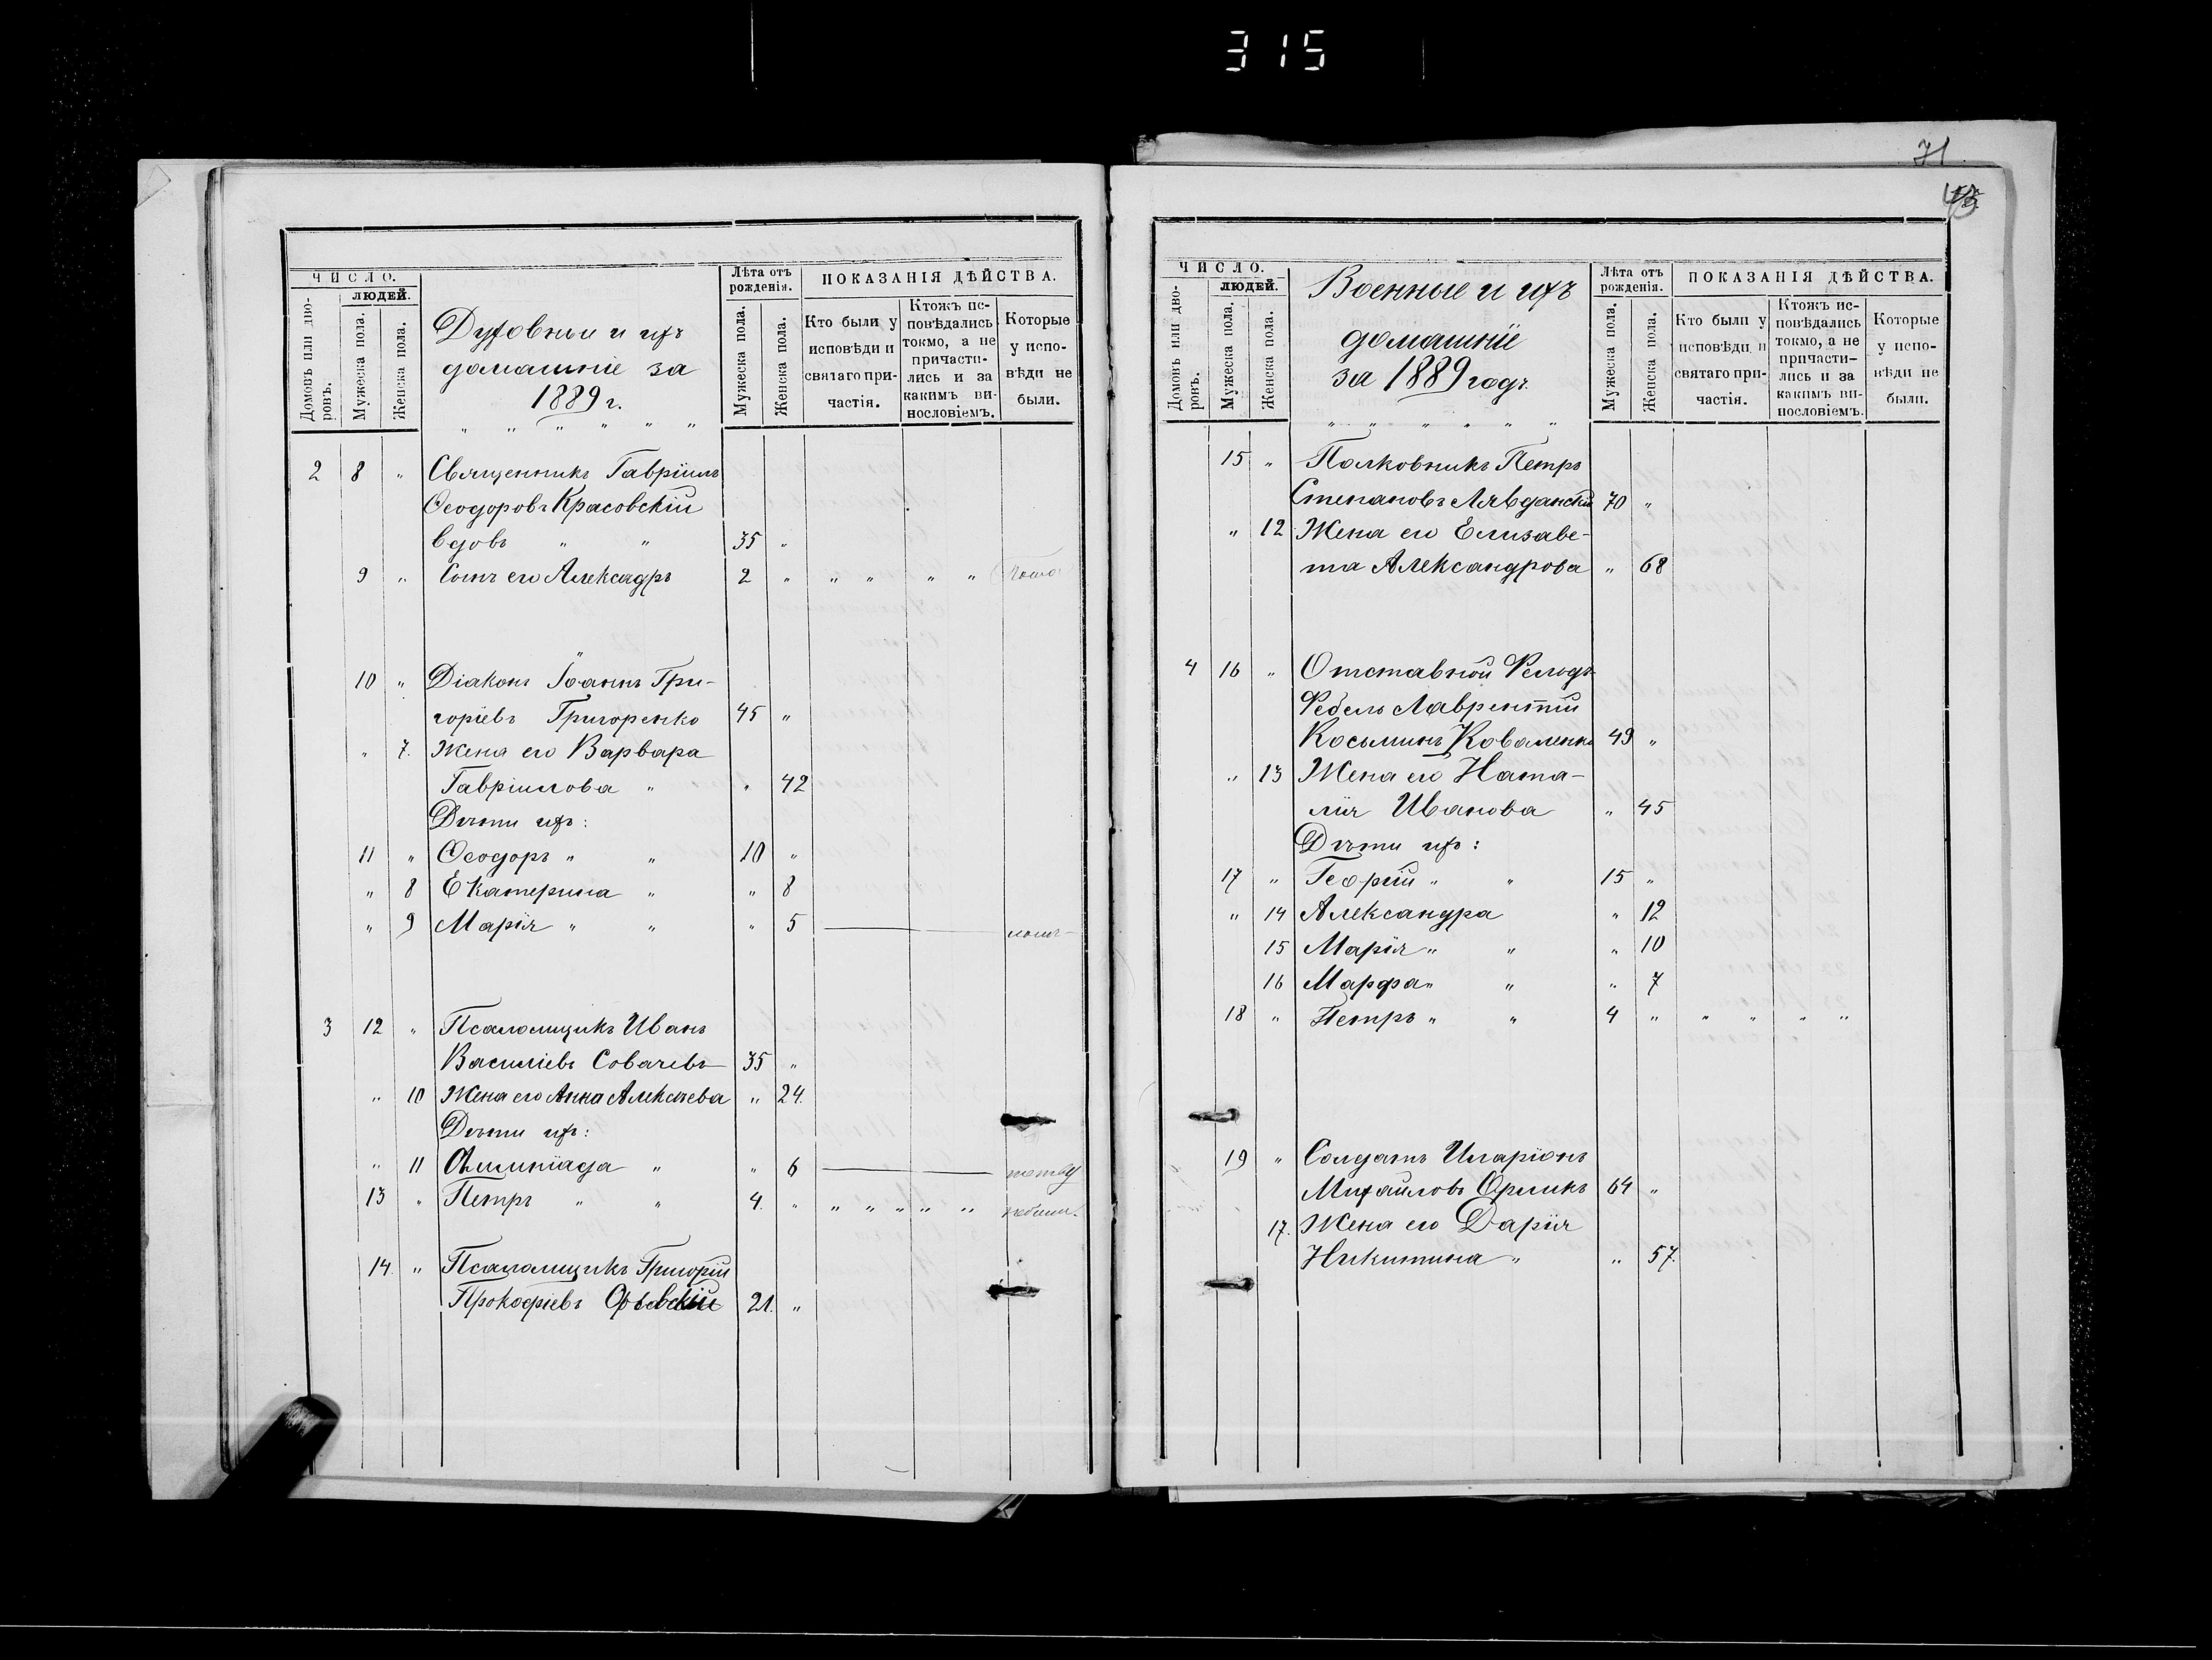 315
71
ЧИСЛО.
ЛЮДЕЙ.
Домовъ или дворовъ.
Мужеска пола.
Женска пола.
Духовныи и ихъ
домашніе за
1889 г.
Лѣта отъ рожденія.
Мужеска пола.
Женска пола.
ПОКАЗАНІЯ ДѢЙСТВА.
Кто были у исповѣди и святаго причастія.
Ктожъ исповѣдались токмо, а не причастились и за какимъ винословіемъ.
Которые у исповѣди не были.
" " " " " "
2 8 " Священникъ Гавріилъ
Ѳеодоровъ Красовскій
вдовъ " " 35 "
9 " Сынъ его Александръ 2 " " " " "
10 " Діаконъ Іоаннъ Гри-
горіевъ Григоренко 45 "
" 7. Жена его Варвара
Гавріилова " " 42
Дѣти ихъ:
11 " Ѳеодоръ " " 10 "
" 8 Екатерина " " 8
" 9 Марія " " " 5
3 12 " Псаломщикъ Иванъ
Василіевъ Собачевъ 35 "
" 10 Жена его Анна Алексѣева " 24.
Дѣти ихъ:
" 11 Олимпіада " " 6
13 " Петръ " " 4. " " " " " "
14. " Псаломщикъ Григорій
Прокофіевъ 21. "
ЧИСЛО.
ЛЮДЕЙ.
Домовъ или дворовъ.
Мужеска пола.
Женска пола.
Военные и ихъ
домашніе
за 1889 годъ
Лѣта отъ рожденія.
Мужеска пола.
Женска пола.
ПОКАЗАНІЯ ДѢЙСТВА.
Кто были у исповѣди и святаго причастія.
Ктожъ исповѣдались токмо, а не причастились и за какимъ винословіемъ.
Которые у исповѣди не были.
" " " " " "
15 " Полковникъ Петръ
Степановъ Лявданскій 70 "
" 12 Жена его Елизаве-
та Александрова " 68
4 16 " Отставной Фелод-
Фебель Лаврентій
Косьминъ Коваленко 49 "
" 13 Жена его Ната-
лія Иванова " 45
Дѣти ихъ:
17 " Георгій " " 15 "
" 14 Александра " 12
15 Марія " " " 10
16 Марфа " " " 7
18 " Петръ " " 4 " " " " "
19 " Солдатъ Иларіонъ
Михаиловъ Орликъ 64 "
17. Жена его Дарія
Никитина " " 57.